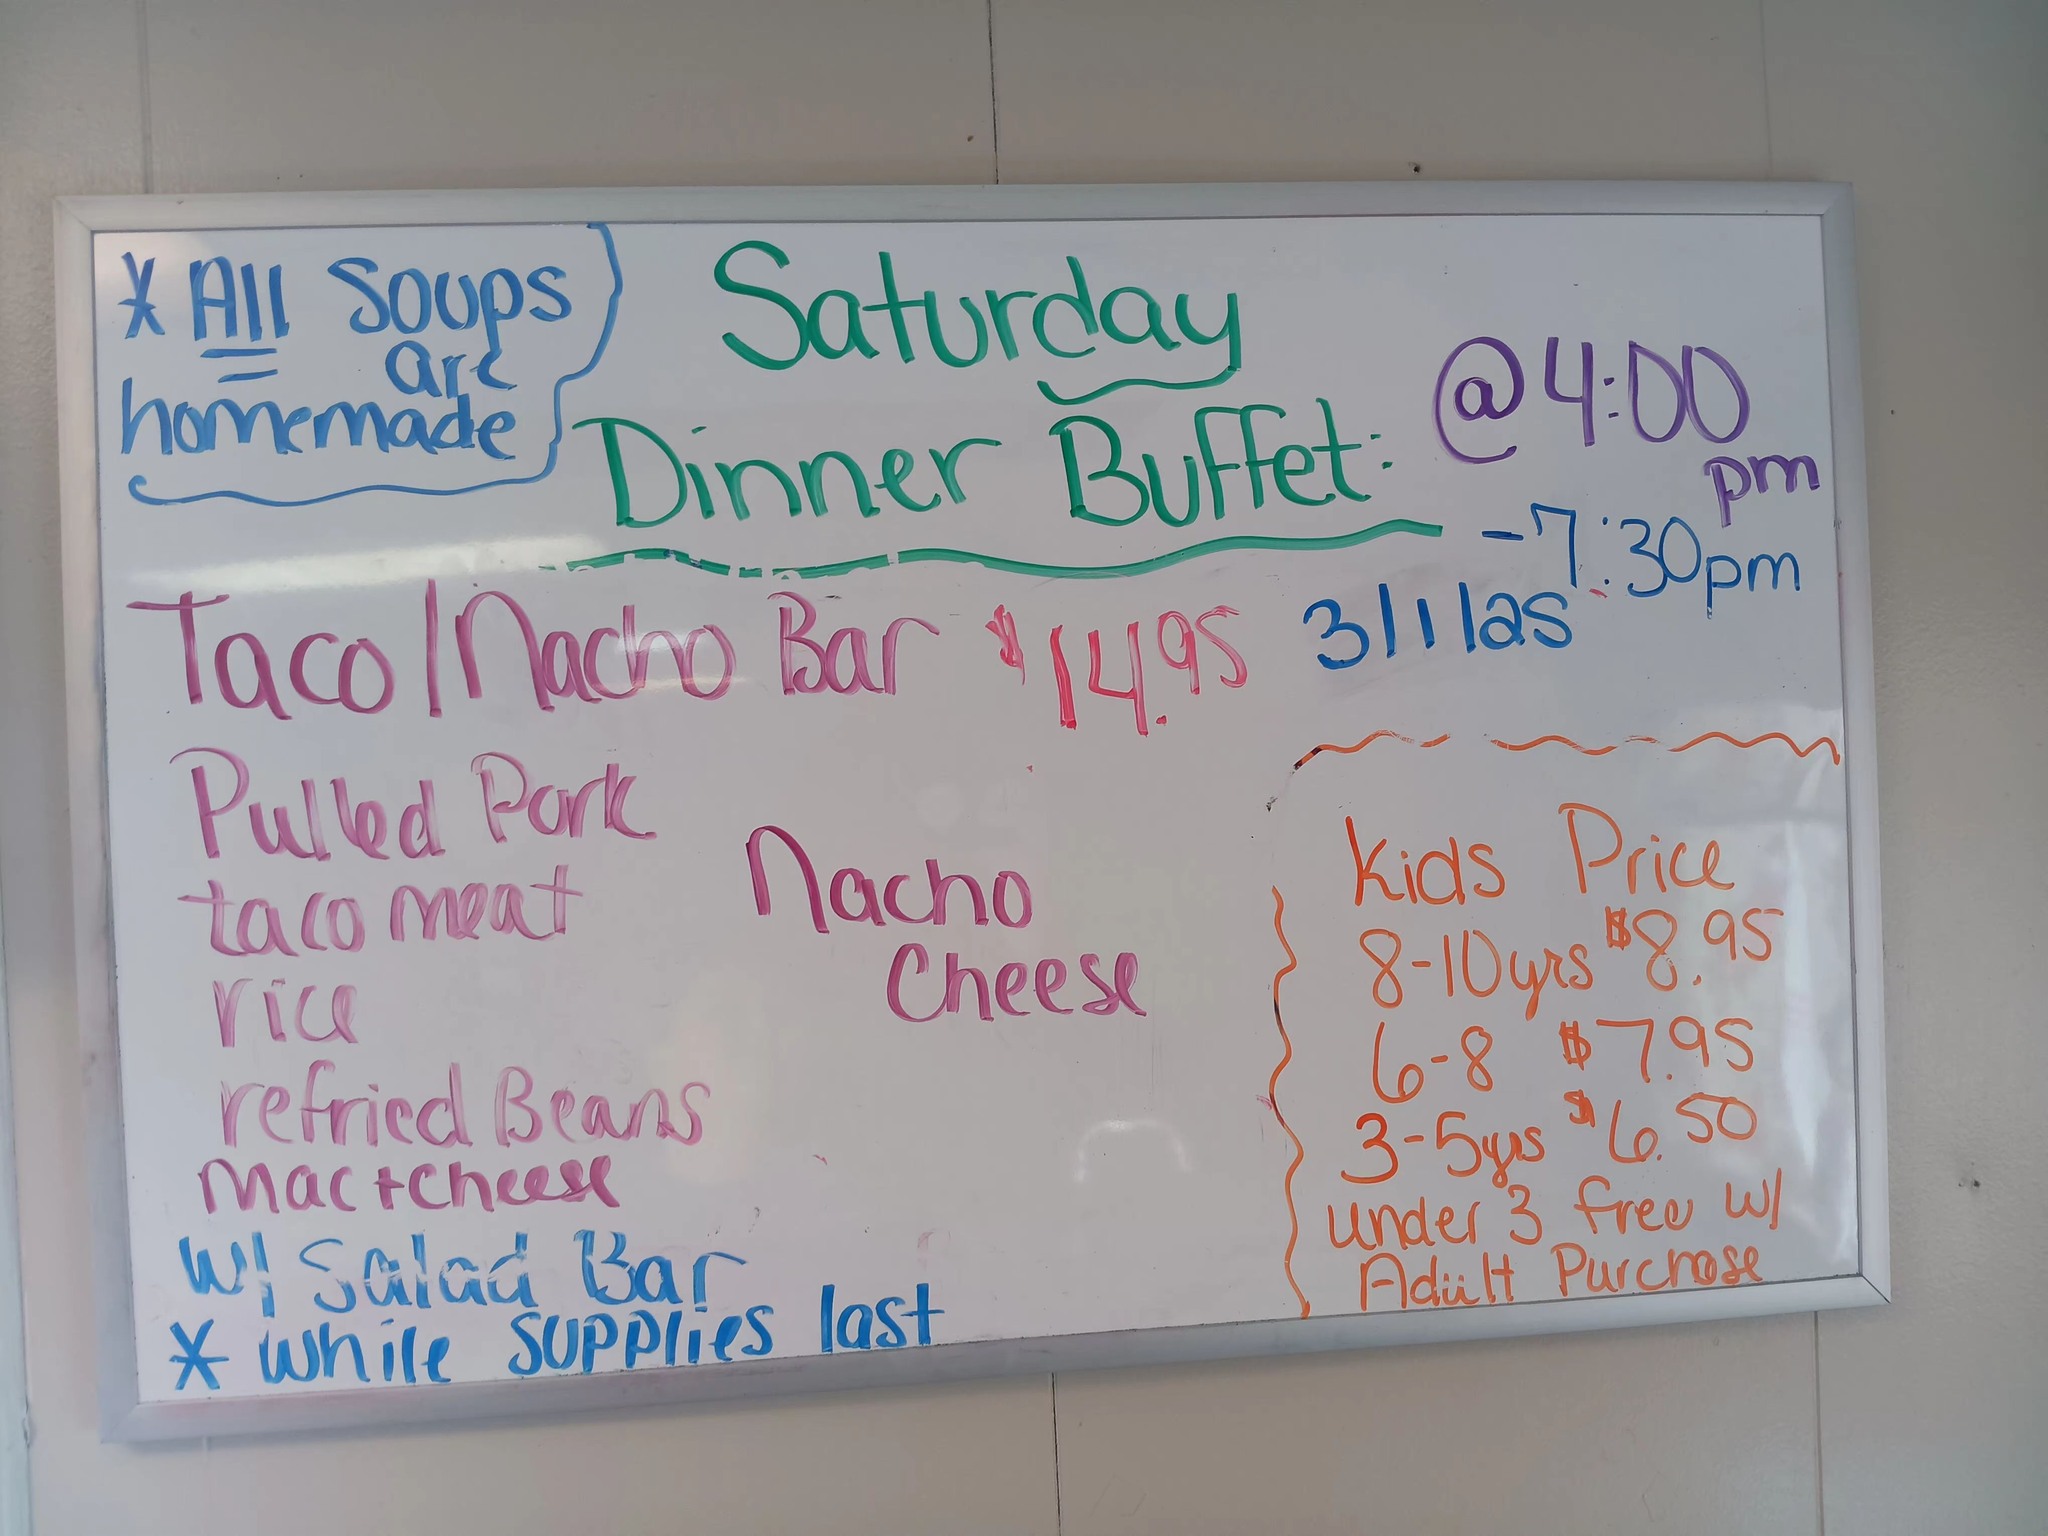 * All Soups
are
homemade
Saturday
Dinner Buffet:
@ 4:00
pm
-7:30pm
3/1/25
Taco/Nacho Bar $14.95
Pulled Pork
taco meat
rice
refried Beans
Mac+Cheese
Nacho
Cheese
w/ Salad Bar
* while supplies last
Kids Price
8-10yrs $8.95
6-8 $7.95
3-5yrs $6.50
under 3 free w/
Adult Purchase